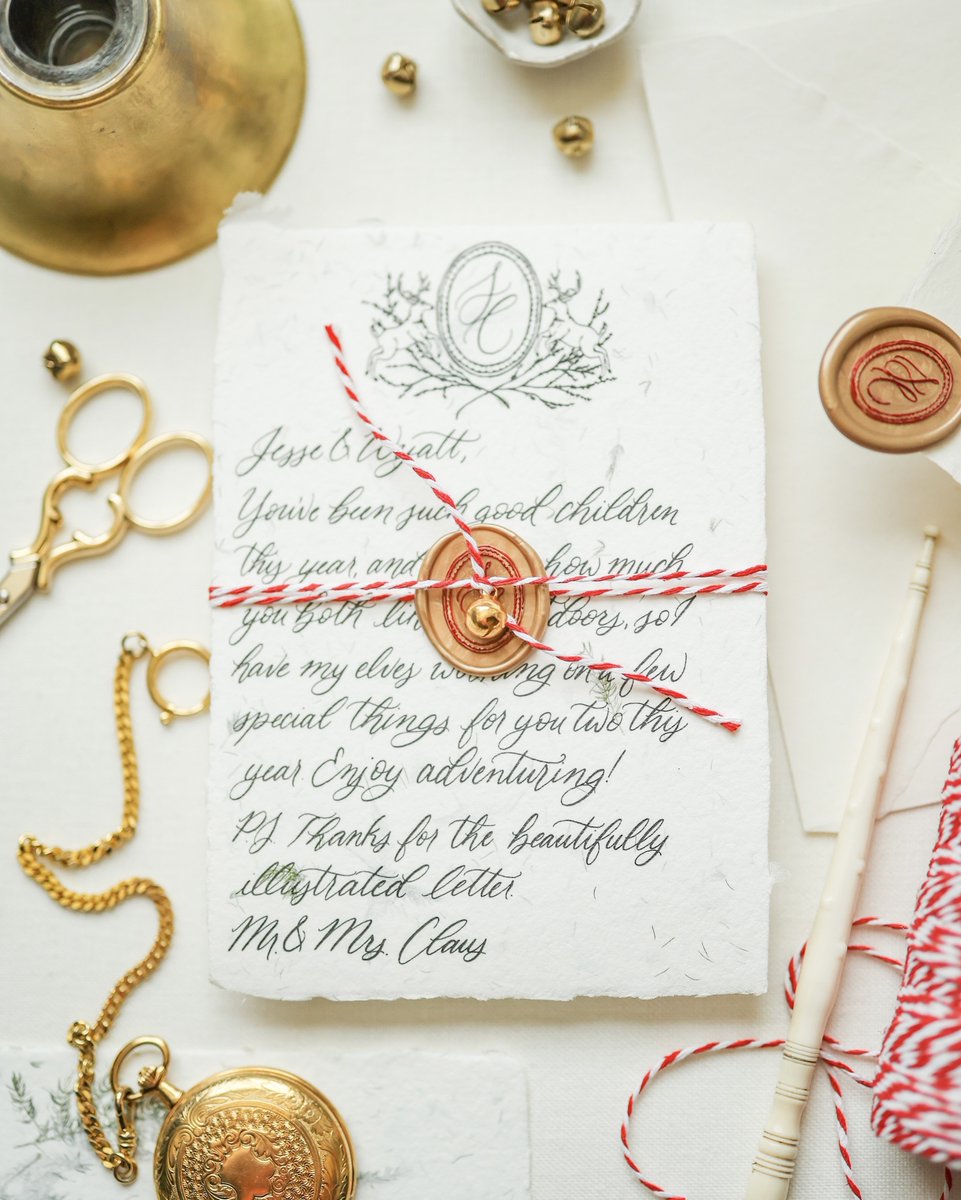 SC
Jesse & Wyatt,
You've been such good children
this year, and how much
you both doors, so I
have my elves working on a few
special things for you two this
year. Enjoy adventuring!
P.S. Thanks for the beautifully
illustrated letter.
Mr. & Mrs. Claus